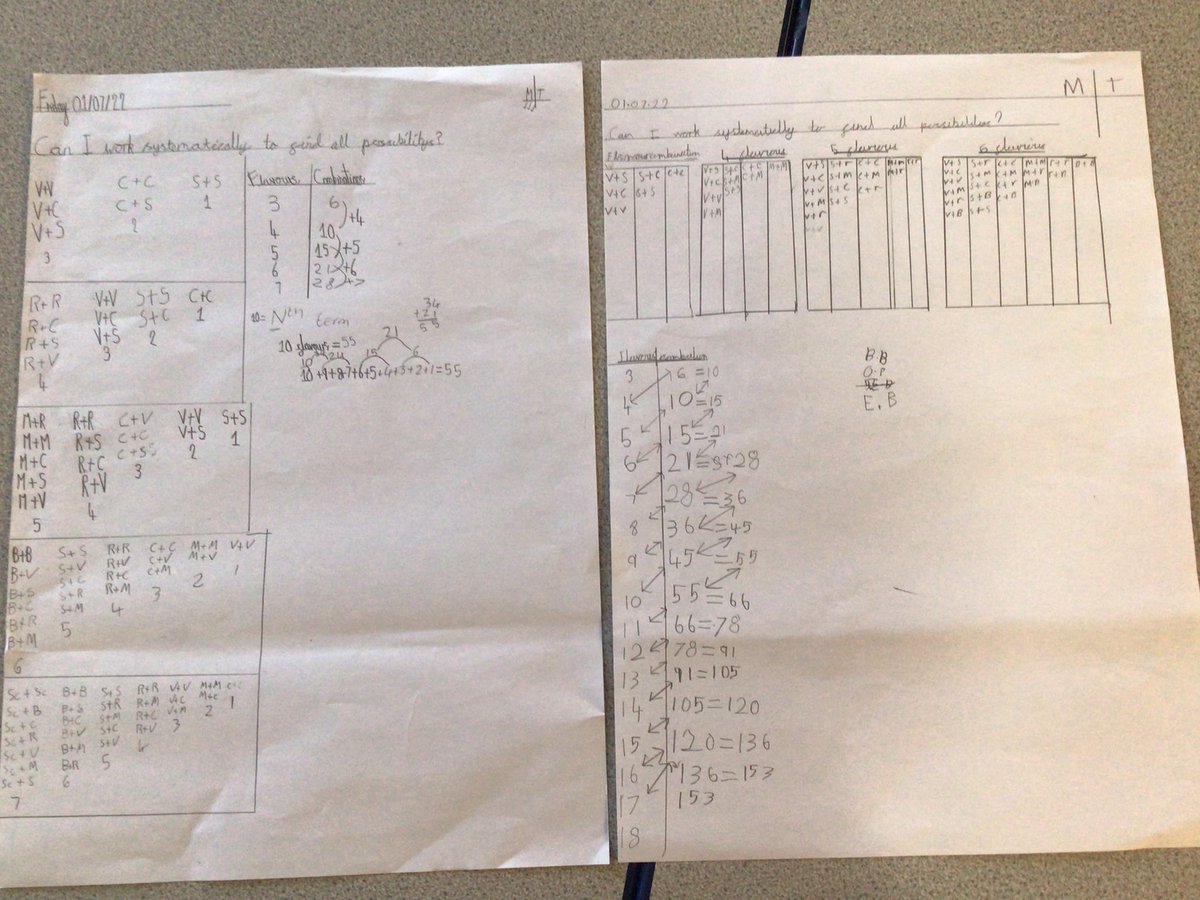 Friday 01/07/22
M T
Can I work systematically to find all possibilitys?
V+V C+C S+S
V+C C+S 1
V+S 2
3
R+R V+V S+S C+C
R+C V+C S+C 1
R+S V+S 2
R+V 3
4
M+R R+R C+V V+V S+S
M+M R+S C+C V+S 1
M+C R+C C+SS 2
M+S R+V 3
M+V 4
5
B+B S+S R+R C+C M+M V+V
B+V S+V R+V C+V M+V 1
B+S S+C R+C C+M 2
B+C S+R R+M 3
B+R S+M 4
B+M 5
6
Sc+Sc B+B S+S R+R V+V M+M C+C
Sc+B B+S S+R R+M V+C M+C 1
Sc+C B+C S+M R+C V+M 2
Sc+R B+V S+C R+V 3
Sc+V B+M S+V 4
Sc+M B+R 5
Sc+S 6
7
Flavours Combinations
3 6
+4
4 10
5 15 +5
6 21 +6
7 28 +7
10= Nth term
34
+21
55
10 flavours=55
21
15 6
10+9+8+7+6+5+4+3+2+1=55
M T
01.07.22
Can I work systematically to find all possibilities?
4 flavours 5 flavours 6 flavours
V+S S+C C+C
V+C S+S
V+V
V+S S+C C+C M+M
V+C S+M C+M
V+V S+S
V+M
V+S S+r C+C M+M r+r
V+C S+M C+M M+r
V+V S+C C+r
V+M S+S
V+r
V+S S+r C+C M+M r+r B+B
V+C S+M C+M M+r
V+V S+C C+r
V+M
V+r S+B C+B
V+B S+S
3 6 =10
4 10 =15
5 15 =21
6 21
7 28 =36
8 36 =45
9 45 =55
10 55 =66
11 66=78
12 78=91
13 91=105
14 105=120
15 120=136
16 136=153
17 153
18
B.B
O.P
E.B